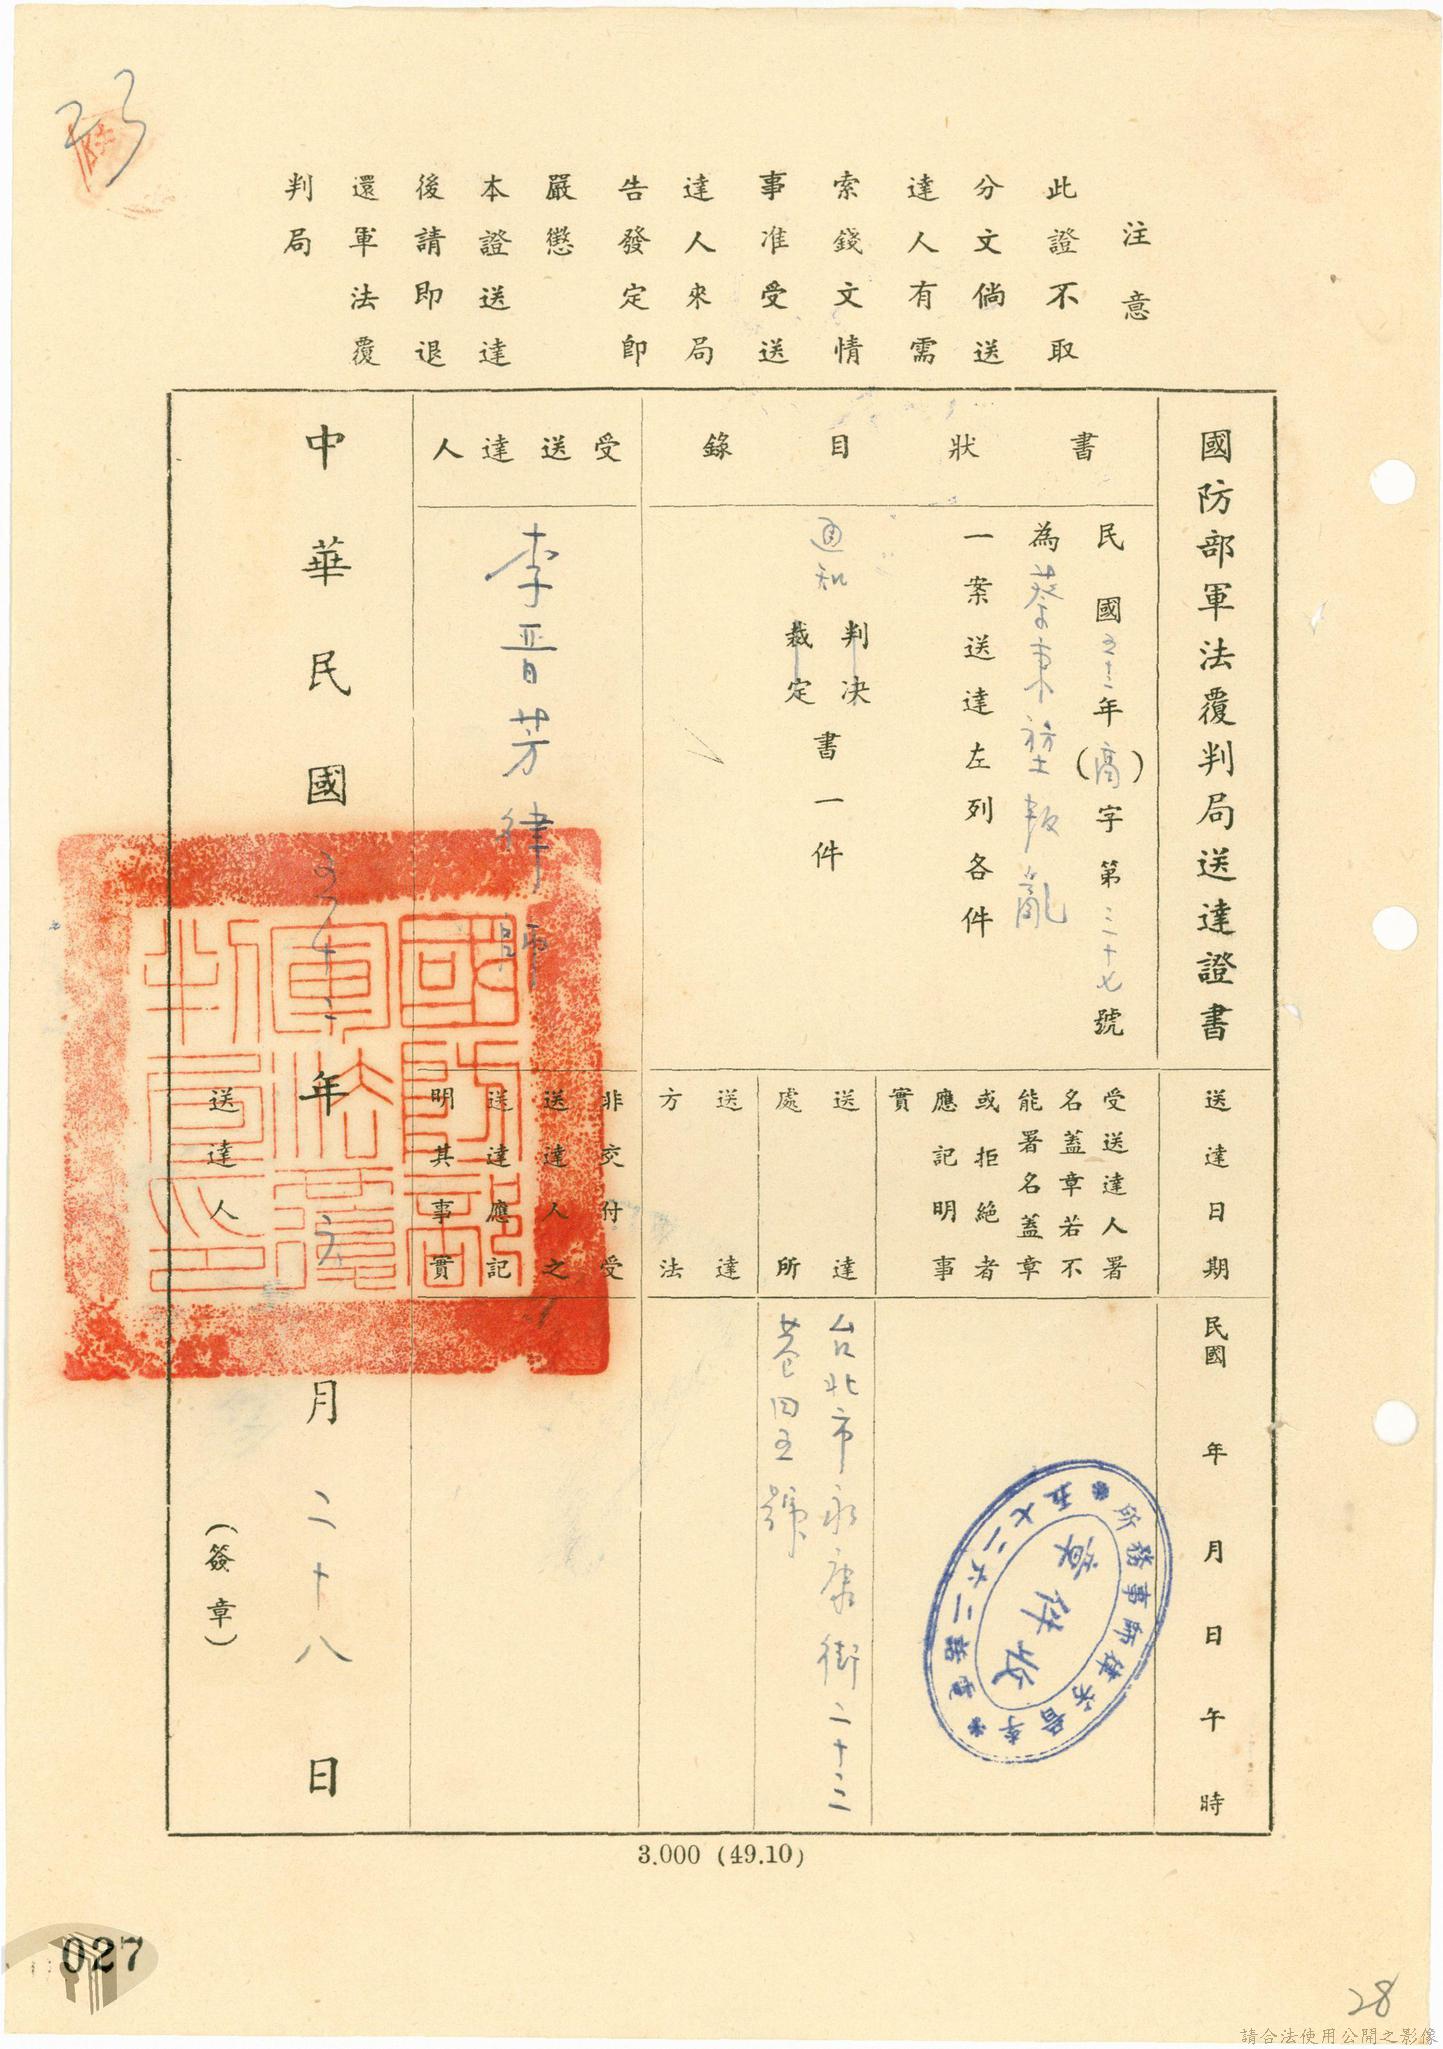 注意
此證不取
分文倘送
達人有需
索錢文情
事准受送
達人來局
告發定即
嚴懲
本證送達
後請即退
還軍法覆
判局
國防部軍法覆判局送達證書
送達日期
民國 年 月 日 午 時
書狀目錄
民國五十三年(高)字第三十七號
為蔡東堃叛亂
一案送達左列各件
通知
判決
裁定
書一件
受送達人署
名蓋章若不
能署名蓋章
或拒絕者
應記明事
實
李晋芳律師事務所
電話二六二七五
收件章
送達
處所
台北市永康街二十三
巷四五號
送達
方法
受送達人
李晋芳律師
非交付受
送達人之
送達應記
明其事實
中華民國五十三年 六 月二十八日
送達人
(簽章)
國防部軍法覆判局印
3.000 (49.10)
027
28
請合法使用公開之影像